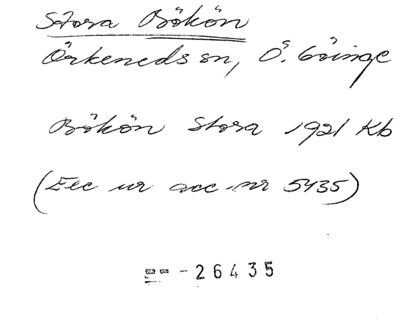 Stora Bökön
Örkeneds sn, Ö. Göinge
Bökön Stora 1921 Kb
(Exc ur acc.nr 5435)
-26435